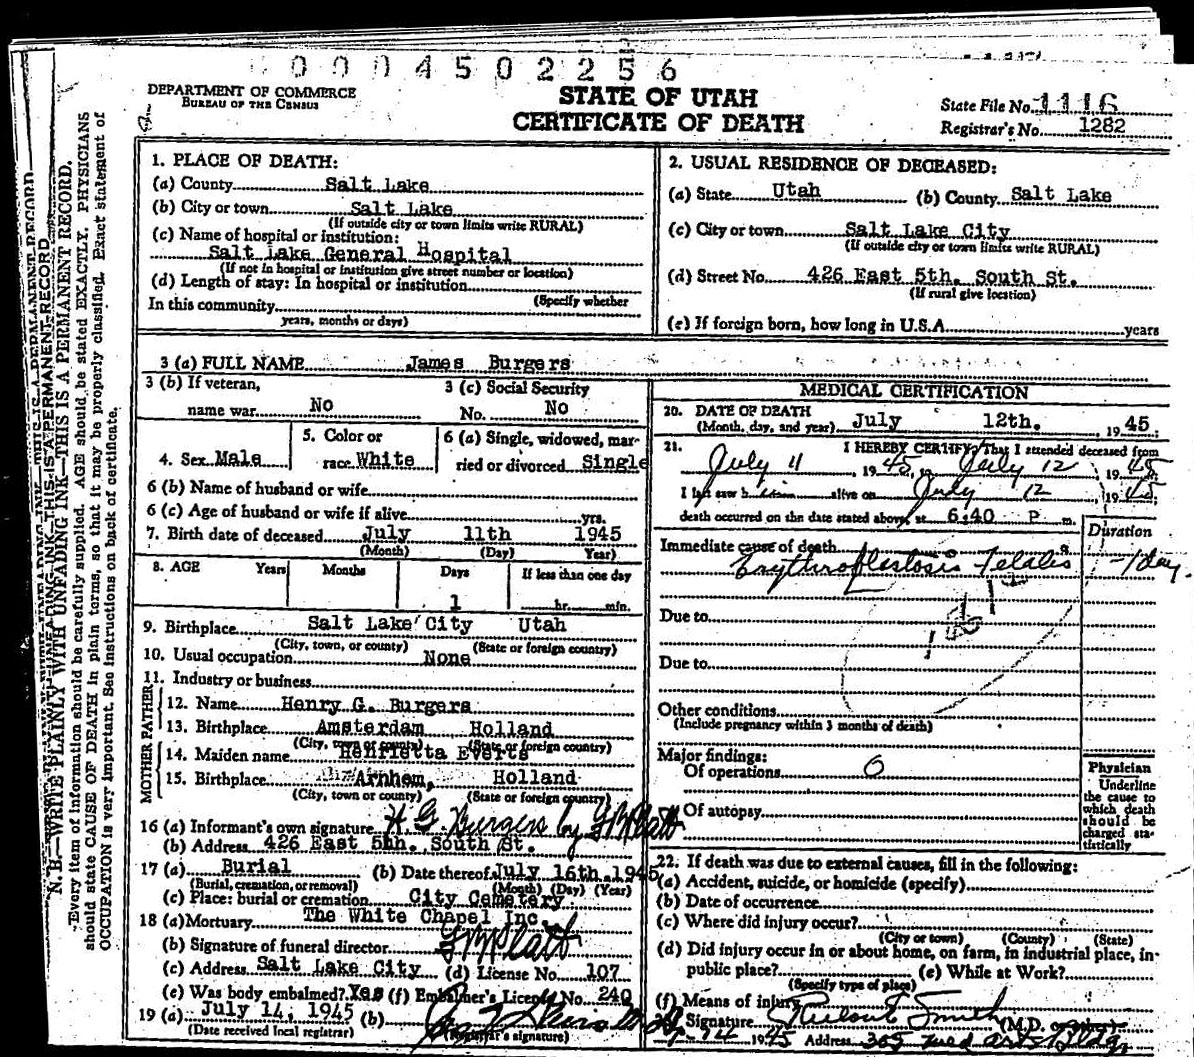 0004502256
DEPARTMENT OF COMMERCE
BUREAU OF THE CENSUS
STATE OF UTAH
CERTIFICATE OF DEATH
State File No. 1116
Registrar's No. 1282
N. B.—WRITE PLAINLY WITH UNFADING INK—THIS IS A PERMANENT RECORD.
Every item of information should be carefully supplied. AGE should be stated EXACTLY. PHYSICIANS
should state CAUSE OF DEATH in plain terms, so that it may be properly classified. Exact statement of
OCCUPATION is very important. See instructions on back of certificate.
1. PLACE OF DEATH:
(a) County Salt Lake
(b) City or town Salt Lake
(If outside city or town limits write RURAL)
(c) Name of hospital or institution:
Salt Lake General Hospital
(If not in hospital or institution give street number or location)
(d) Length of stay: In hospital or institution
(Specify whether
In this community
years, months or days)
2. USUAL RESIDENCE OF DECEASED:
(a) State Utah (b) County Salt Lake
(c) City or town Salt Lake City
(If outside city or town limits write RURAL)
(d) Street No. 426 East 5th. South St.
(If rural give location)
(e) If foreign born, how long in U.S.A. years
3 (a) FULL NAME James Burgers
3 (b) If veteran,
name war No
3 (c) Social Security
No. No
4. Sex Male
5. Color or
race White
6 (a) Single, widowed, mar-
ried or divorced Single
6 (b) Name of husband or wife
6 (c) Age of husband or wife if alive yrs.
7. Birth date of deceased July 11th 1945
(Month) (Day) Year)
8. AGE Years Months Days If less than one day
1 hr. min.
9. Birthplace Salt Lake City Utah
(City, town, or county) (State or foreign country)
10. Usual occupation None
11. Industry or business
FATHER
12. Name Henry G. Burgers
13. Birthplace Amsterdam Holland
(City, town or county) (State or foreign country)
MOTHER
14. Maiden name Henrietta Everts
15. Birthplace Arnhem, Holland
(City, town or county) (State or foreign country)
16 (a) Informant's own signature H. G. Burgers by G M Platt
(b) Address 426 East 5hh. South St.
17 (a) Burial (b) Date thereof July 16th. 1945
(Burial, cremation, or removal) (Month) (Day) (Year)
(c) Place: burial or cremation City Cemetery
18 (a) Mortuary The White Chapel Inc.
(b) Signature of funeral director G M Platt
(c) Address Salt Lake City (d) License No. 107
(e) Was body embalmed? Yes (f) Embalmer's License No. 240
19 (a) July 14, 1945 (b)
(Date received local registrar) (Registrar's signature)
MEDICAL CERTIFICATION
20. DATE OF DEATH
(Month, day, and year) July 12th. 1945;
21. I HEREBY CERTIFY, That I attended deceased from
July 11, 1945, to July 12, 1945
I last saw him alive on July 12, 1945
death occurred on the date stated above, at 6:40 P m.
Duration
Immediate cause of death
Erythroblastosis Fetalis 1 day.
Due to
Due to
Other conditions
(Include pregnancy within 3 months of death)
Major findings:
Of operations 0
Of autopsy
Physician
Underline
the cause to
which death
should be
charged sta-
tistically
22. If death was due to external causes, fill in the following:
(a) Accident, suicide, or homicide (specify)
(b) Date of occurrence
(c) Where did injury occur?
(City or town) (County) (State)
(d) Did injury occur in or about home, on farm, in industrial place, in
public place? (e) While at Work?
(Specify type of place)
(f) Means of injury
Signature Smith (M.D. or other)
1945 Address 305 Med Arts Bldg